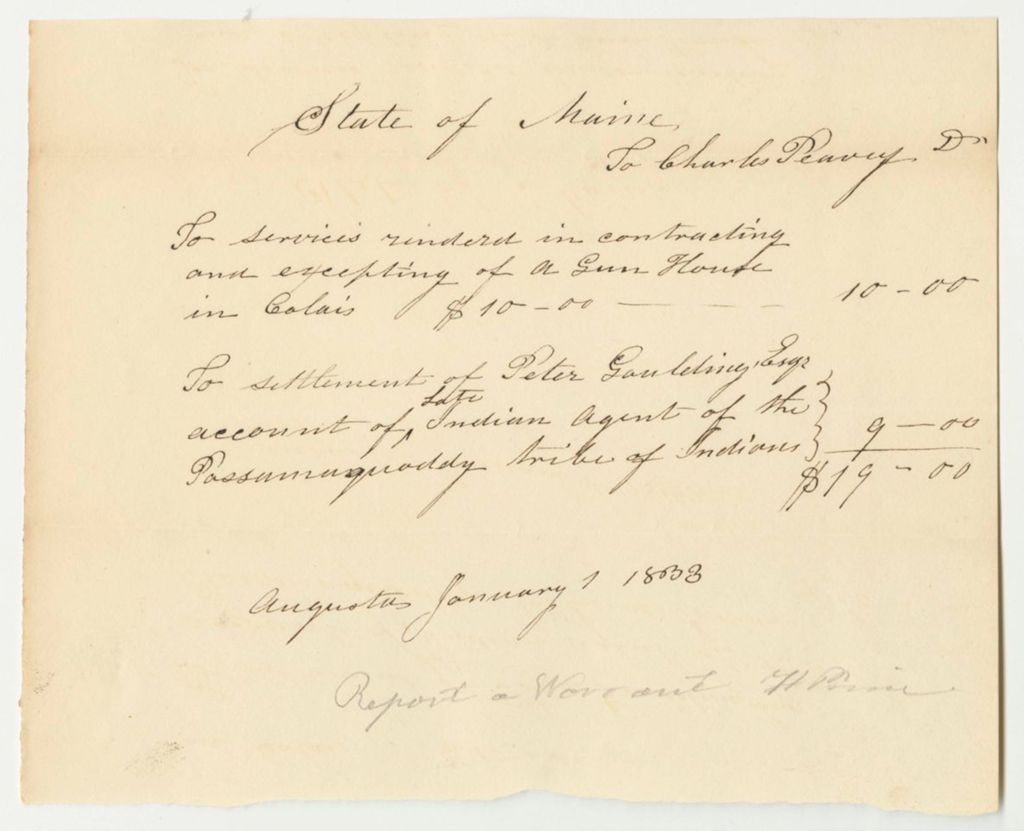 State of Maine
To Charles Peavey Dr
To servicies rinderd in contracting
and excepting of A Gun House
in Calais $10-00 — — — 10-00
To settlement of Peter Goulding, Esqr
account of, late Indian Agent of the
Passamaquoddy tribe of Indians 9-00
$19-00
Augusta January 1 1833
Report a Warrant